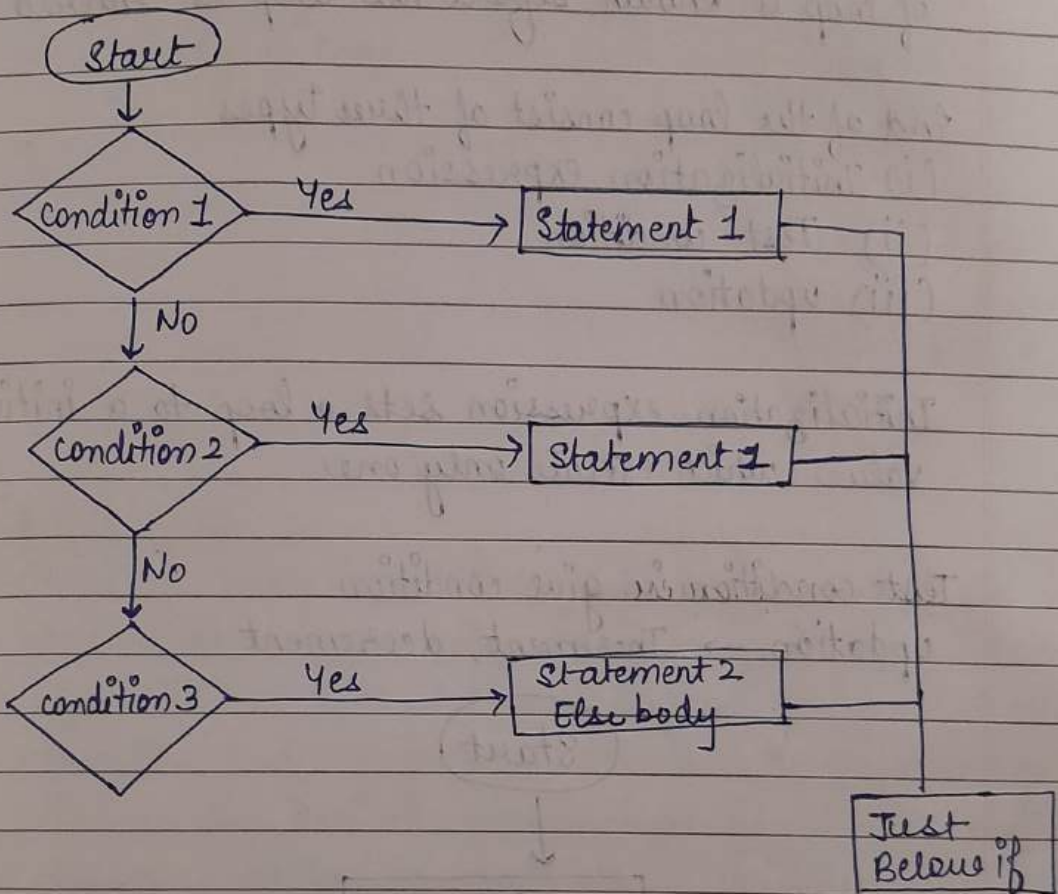 Start
condition 1
Yes
Statement 1
No
condition 2
Yes
Statement 1
No
condition 3
Yes
Statement 2
Else body
Just
Below if